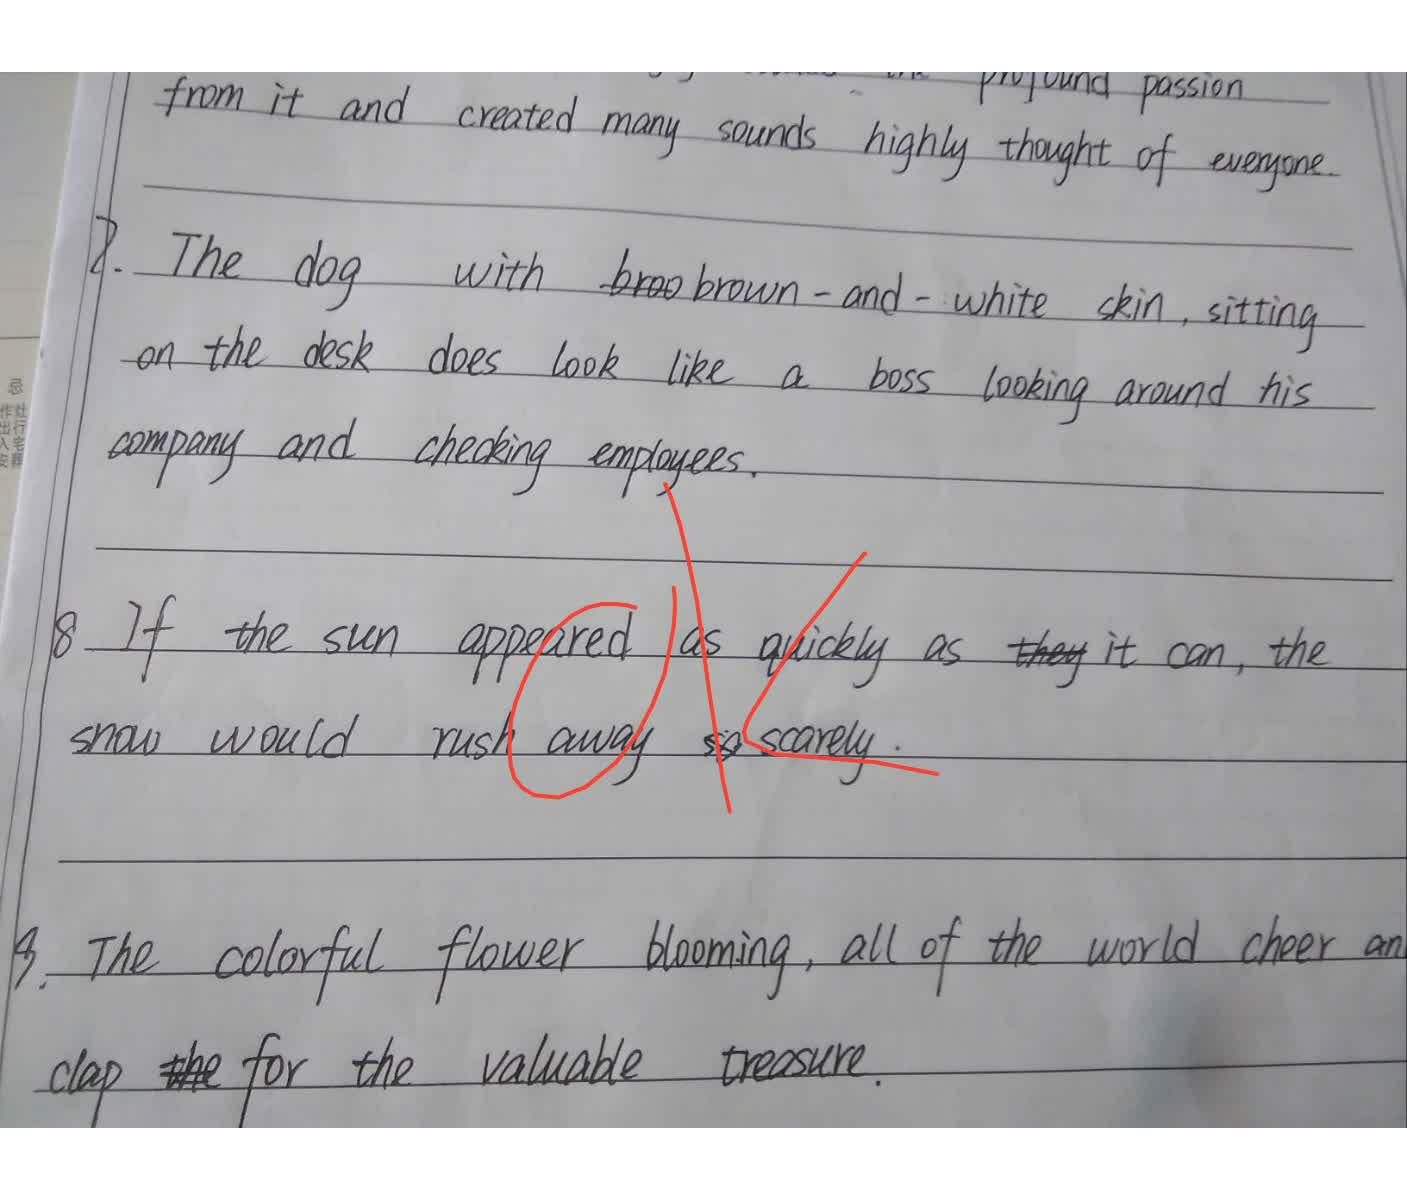 the profound passion
from it and created many sounds highly thought of everyone.
7. The dog with broo brown-and-white skin, sitting
on the desk does look like a boss looking around his
company and checking employees.
8 If the sun appeared as quickly as they it can, the
snow would rush away so scarely.
OK
9. The colorful flower blooming, all of the world cheer an
clap the for the valuable treasure.
忌
作灶
出行
入宅